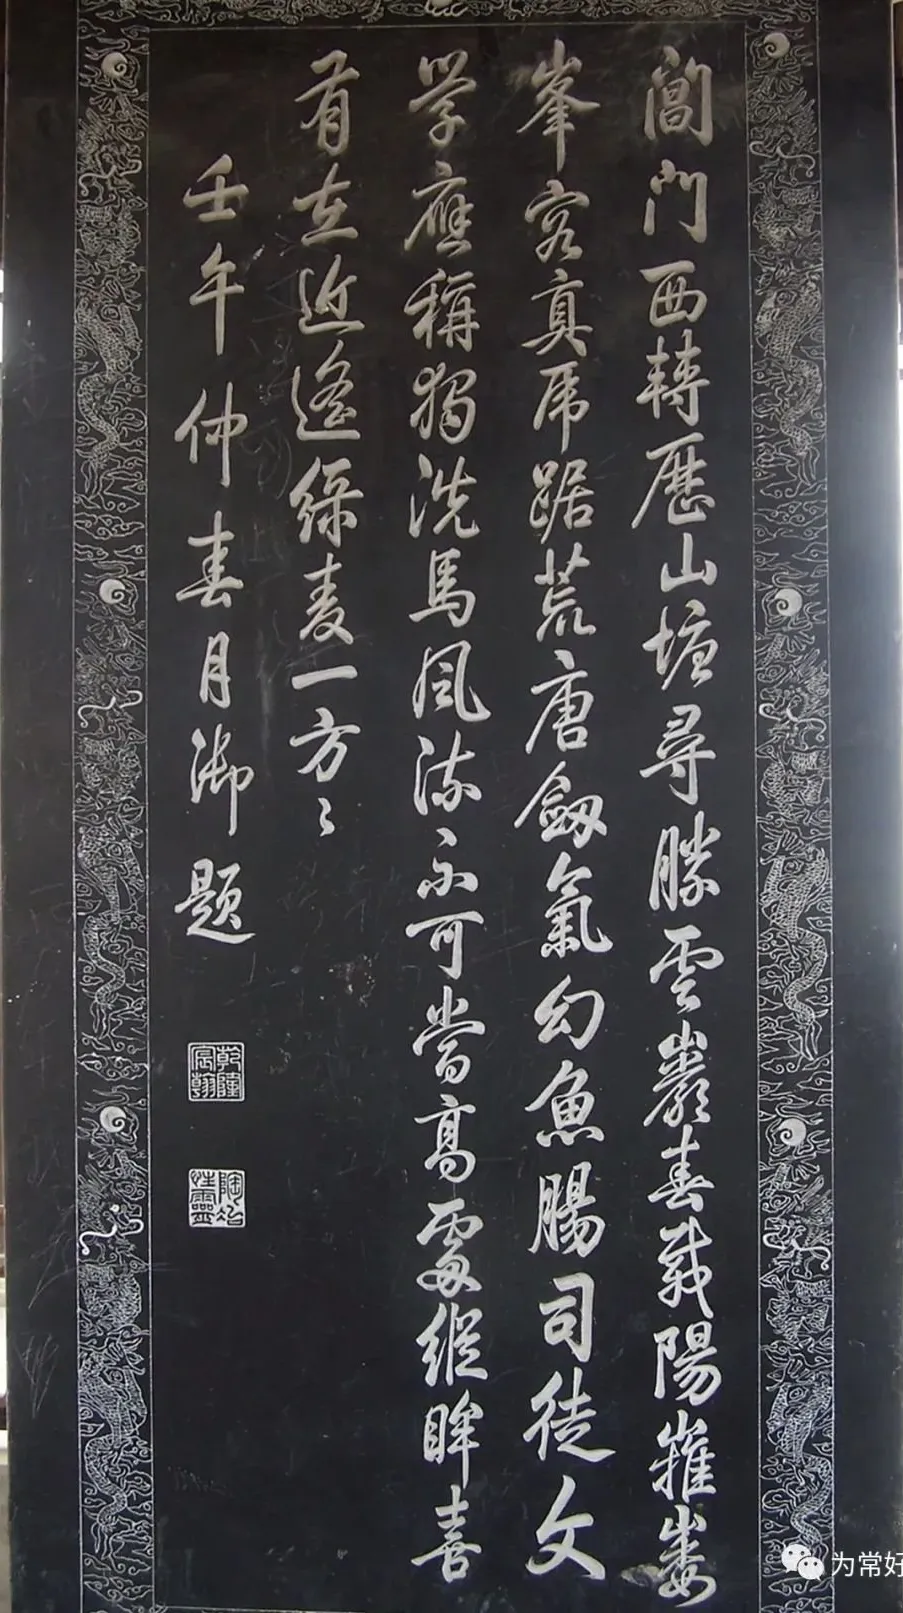 閶門西轉歷山塘尋勝雲巖春載陽嶁
峯容真虎踞荒唐劒氣幻魚腸司徒文
學應稱獨洗馬風流亦可當高處縱眸喜
有在近遙綠麥一方〻
壬午仲春月御題
乾隆宸翰
陶冶性靈
为常好